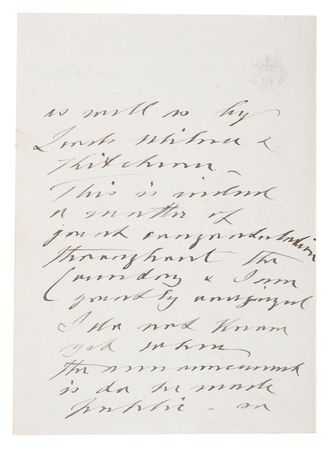 as well as by
Lords Milner &
Kitchener –
This is indeed
a matter of
great congratulation
throughout the
Country & I am
greatly
I do not know
yet when
the announcement
is to be made
public –